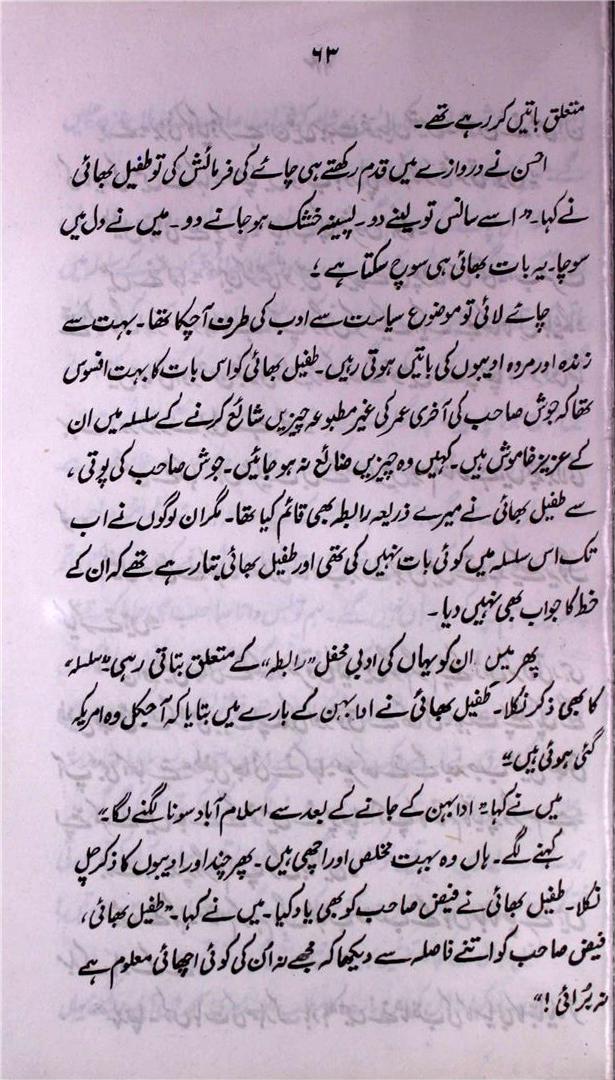 ۶۳
متعلق باتیں کر رہے تھے۔
احسن نے دروازے میں قدم رکھتے ہی چائے کی فرمائش کی تو طفیل بھائی
نے کہا۔ "اسے سانس تو لینے دو۔ پسینہ خشک ہو جانے دو۔ میں نے دل میں
سوچا۔ یہ بات بھائی ہی سوچ سکتا ہے؛
چائے لائی تو موضوع سیاست سے ادب کی طرف آچکا تھا۔ بہت سے
زندہ اور مردہ ادیبوں کی باتیں ہوتی رہیں۔ طفیل بھائی کو اس بات کا بہت افسوس
تھا کہ جوش صاحب کی آخری عمر کی غیر مطبوعہ چیزیں شائع کرنے کے سلسلہ میں ان
کے عزیز خاموش ہیں۔ کہیں وہ چیزیں ضائع نہ ہو جائیں۔ جوش صاحب کی پوتی،
سے طفیل بھائی نے میرے ذریعہ رابطہ بھی قائم کیا تھا۔ مگر ان لوگوں نے اب
تک اس سلسلہ میں کوئی بات نہیں کی تھی اور طفیل بھائی بتا رہے تھے کہ ان کے
خط کا جواب بھی نہیں دیا۔
پھر میں ان کو یہاں کی ادبی محفل "رابطہ" کے متعلق بتاتی رہی۔ "سلسلہ"
کا بھی ذکر نکلا۔ طفیل بھائی نے ادا بہن کے بارے میں بتایا کہ آجکل وہ امریکہ
گئی ہوئی ہیں"
میں نے کہا " ادا بہن کے جانے کے بعد سے اسلام آباد سونا لگنے لگا"
کہنے لگے۔ ہاں وہ بہت مخلص اور اچھی ہیں۔ پھر چند اور ادیبوں کا ذکر چل
نکلا۔ طفیل بھائی نے فیض صاحب کو بھی یاد کیا۔ میں نے کہا۔ "طفیل بھائی،
فیض صاحب کو اتنے فاصلہ سے دیکھا کہ مجھے نہ اُن کی کوئی اچھائی معلوم ہے
نہ بُرائی!"